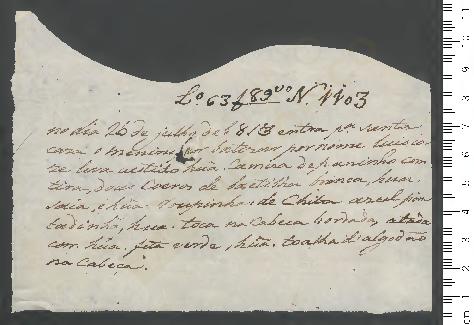 Lº 63 f 89 vº Nº 1103
no dia 26 de julho de 1813 entra pª santa
caza o menino por batizar por nome
leva vestido hũa Camiza de paninho com
tira, dous Coeros de baetilha branca, huma
saia, e hũa roupinha de Chita azul pin
tadinho, hua toca na cabeça bordada, atada
com hũa fita verde, hũa toalha d'algodão
na Cabeça.